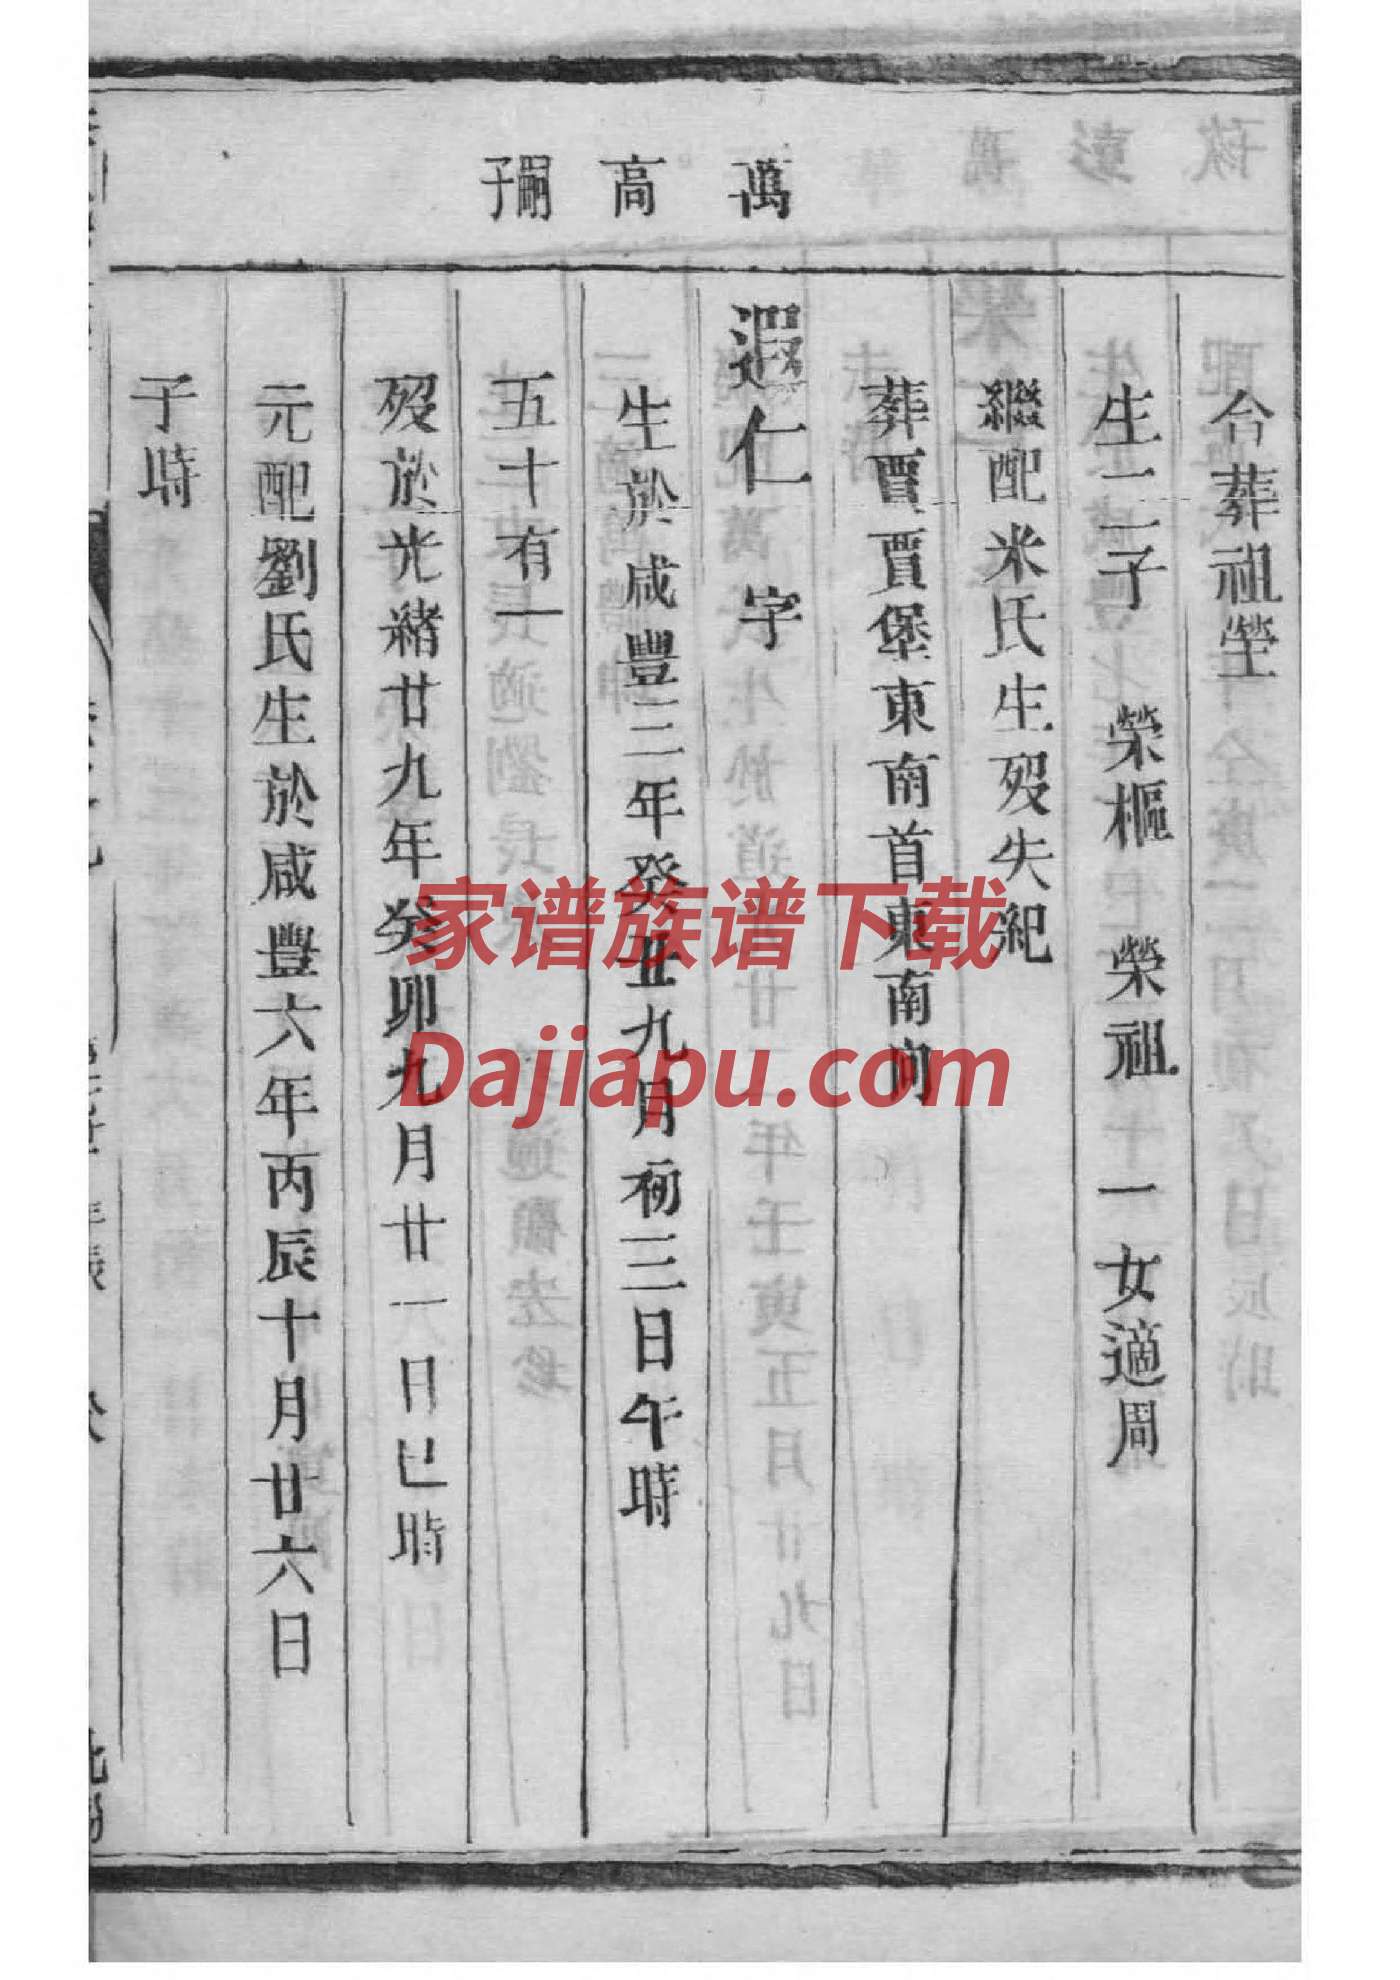 萬
高
子嗣
合葬祖塋
生二子 榮樞 榮祖 一女適周
繼配米氏生歿失紀
葬賈賈堡東南首東南向
遐仁 字
生於咸豐三年癸丑九月初三日午時
五十有一
歿於光緒廿九年癸卯九月廿一日巳時
元配劉氏生於咸豐六年丙辰十月廿六日
子時
家谱族谱下载
Dajiapu.com